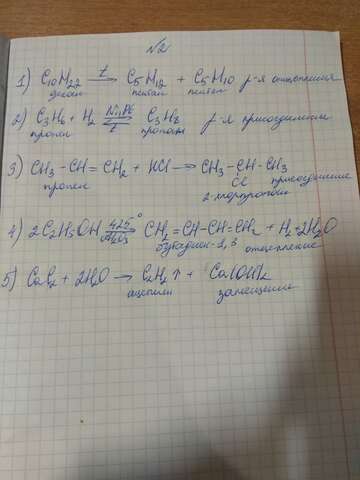 №2
1) C10H22 t→ C5H12 + C5H10 р-я отщепления
декан пентан пентен
2) C3H6 + H2 Ni,Pt ⇄ t C3H8 р-я присоединения
пропен пропан
3) CH3 - CH = CH2 + HCl → CH3 - CH - CH3
пропен Cl присоединение
2-хлорпропан
4) 2C2H5OH 425° Al2O3 → CH2=CH-CH=CH2 + H2+2H2O
бутадиен-1,3 отщепление
5) CaC2 + 2H2O → C2H2↑ + Ca(OH)2
ацетилен замещение